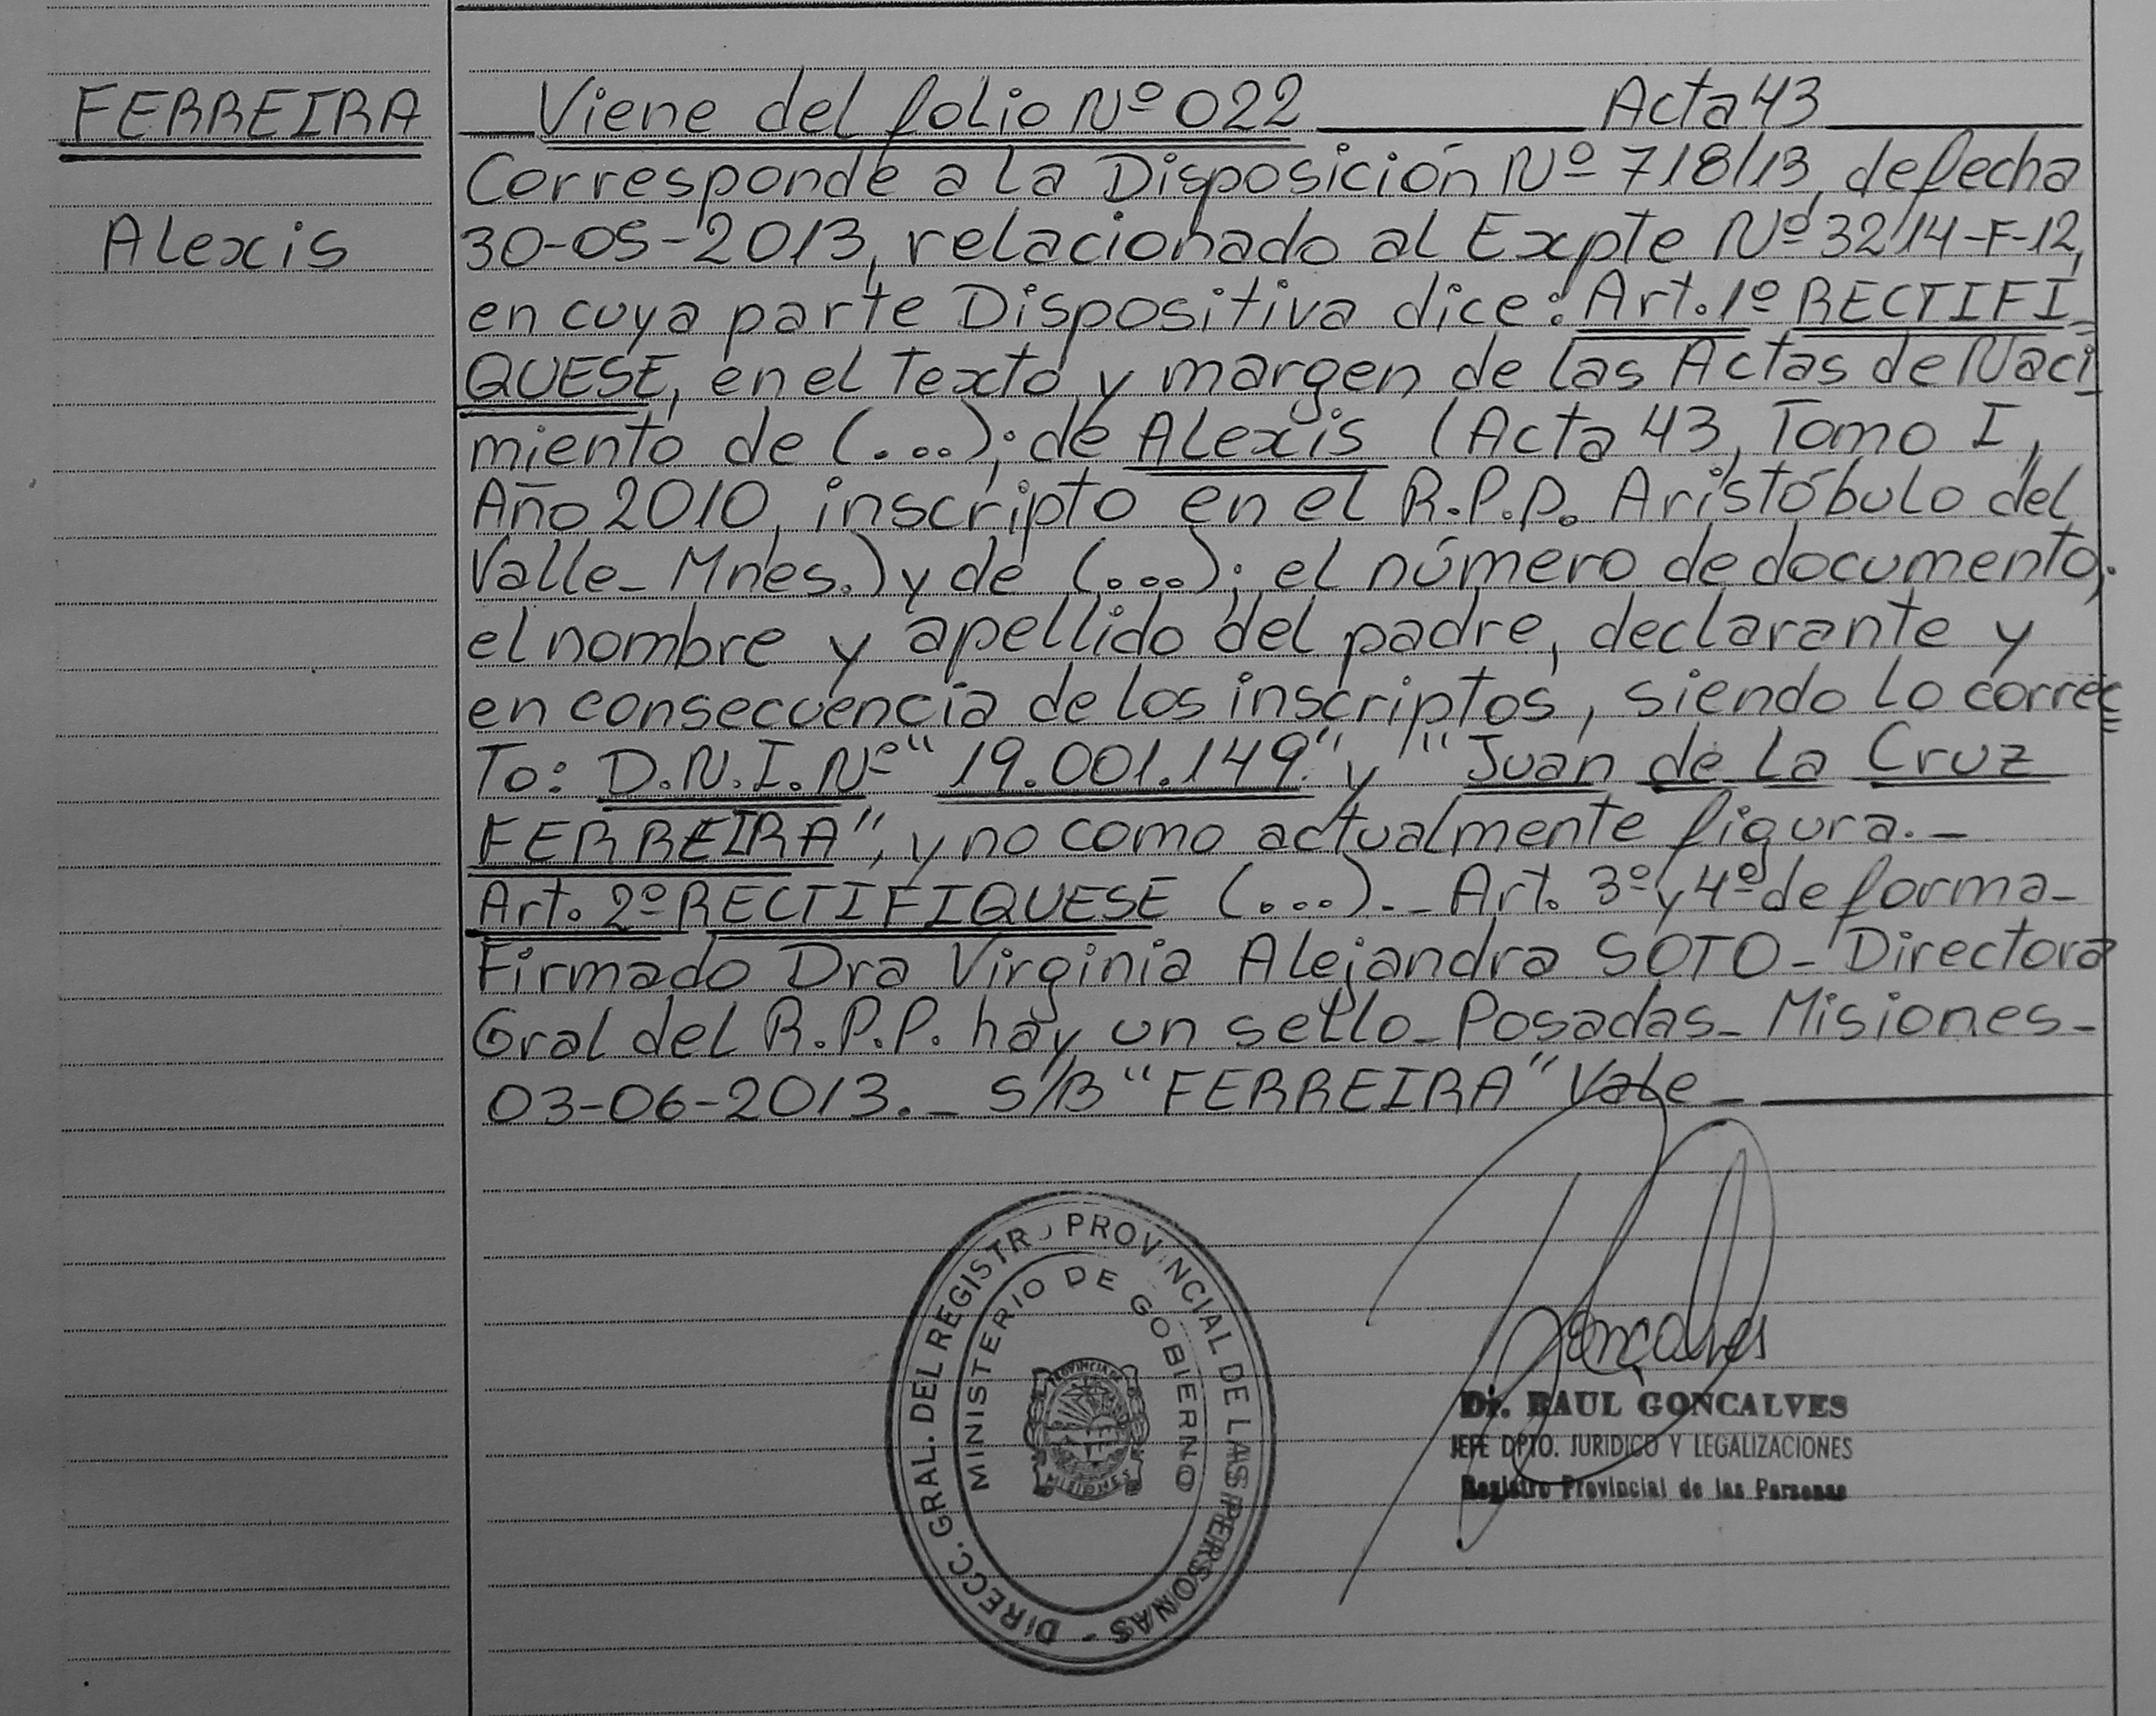 FERREIRA
Alexis
Viene del folio Nº 022 Acta 43
Corresponde a la Disposición Nº 718/13, de fecha
30-05-2013, relacionado al Expte Nº 3214-F-12,
en cuya parte Dispositiva dice: Art. 1º RECTIFI
QUESE, en el Texto y margen de las Actas de Naci
miento de (...); de Alexis (Acta 43, Tomo I,
Año 2010, inscripto en el R.P.P. Aristóbulo del
Valle_ Mnes.) y de (...); el número de documento,
el nombre y apellido del padre, declarante y
en consecuencia de los inscriptos, siendo lo correc
To: D.N.I. Nº "19.001.149." y "Juan de la Cruz
FERREIRA", y no como actualmente figura.-
Art. 2º RECTIFIQUESE (...)._ Art. 3º y 4º de forma-
Firmado Dra Virginia Alejandra SOTO - Directora
Gral del R.P.P. hay un sello_ Posadas_ Misiones-
03-06-2013._ S/B "FERREIRA" Vale_
DIRECC. GRAL. DEL REGISTRO PROVINCIAL DE LAS PERSONAS -
MINISTERIO DE GOBIERNO
PROVINCIA DE
MISIONES
Goncalves
Dr. RAUL GONCALVES
JEFE DPTO. JURIDICO Y LEGALIZACIONES
Registro Provincial de las Personas